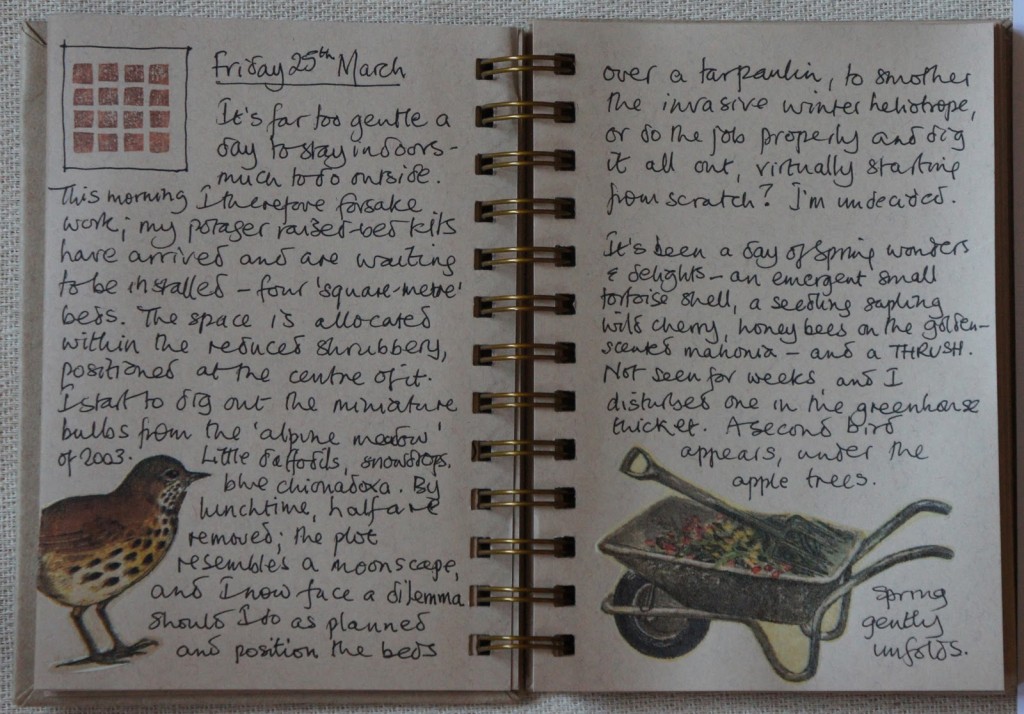 Friday 25th March
It's far too gentle a
day to stay indoors -
much to do outside.
This morning I therefore forsake
work; my potager raised-bed kits
have arrived and are waiting
to be installed - four 'square-metre'
beds. The space is allocated
within the reduced shrubbery,
positioned at the centre of it.
I start to dig out the miniature
bulbs from the 'alpine meadow'
of 2003. Little daffodils, snowdrops,
blue chionadoxa. By
lunchtime, half are
removed; the plot
resembles a moonscape,
and I now face a dilemma
should I do as planned
and position the beds
over a tarpaulin, to smother
the invasive winter heliotrope,
or do the job properly and dig
it all out, virtually starting
from scratch? I'm undecided.
It's been a day of Spring wonders
& delights - an emergent small
tortoise shell, a seedling sapling
wild cherry, honey bees on the golden-
scented mahonia - and a THRUSH.
Not seen for weeks, and I
disturbed one in the greenhouse
thicket. A second bird
appears, under the
apple trees.
Spring
gently
unfolds.